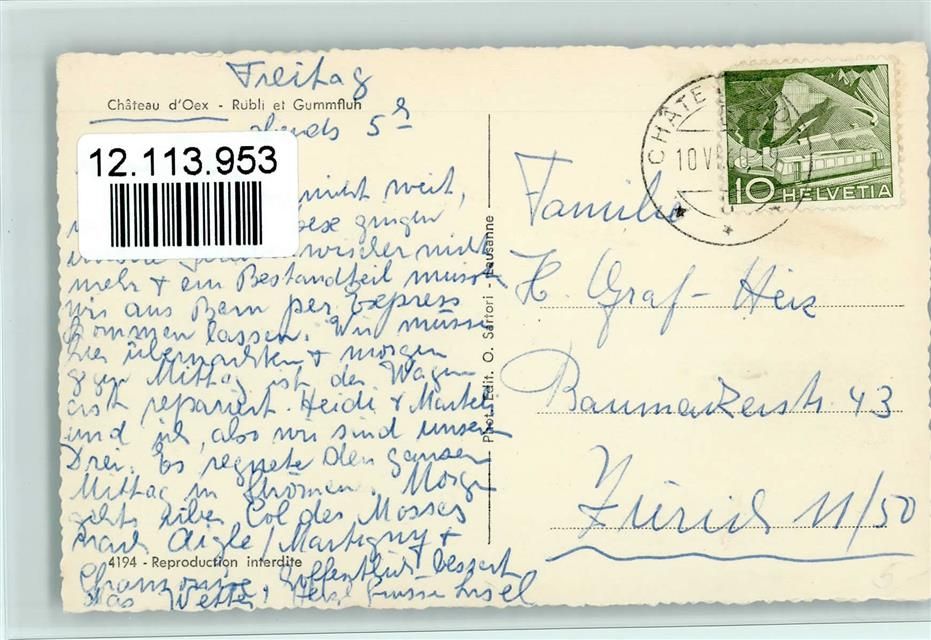 Freitag
Château d'Oex - Rübli et Gummfluh
abends 5
12.113.953
nicht weit,
gingen
nicht
mehr + ein Bestandteil müssen
wir aus Bern per Express
kommen lassen. Wir müssen
hier übernachten + morgen
gegen Mittag ist der Wagen
erst repariert. Heidi + Martel
und ich, also wir sind unser
Drei. Es regnete den ganzen
Mittag in Strömen. Morgen
gehts über Col des Mosses
nach Aigle/Martigny +
4194 - Reproduction interdite
Chamonix, hoffentlich bessert
das Wetter. Herzl Grüsse
Phot. Edit. O. Sartori - Lausanne
CHÂTE
10 VI
10 HELVETIA
Familie
H. Graf-Heiz
Baumackerstr. 43
Zürich 11/50